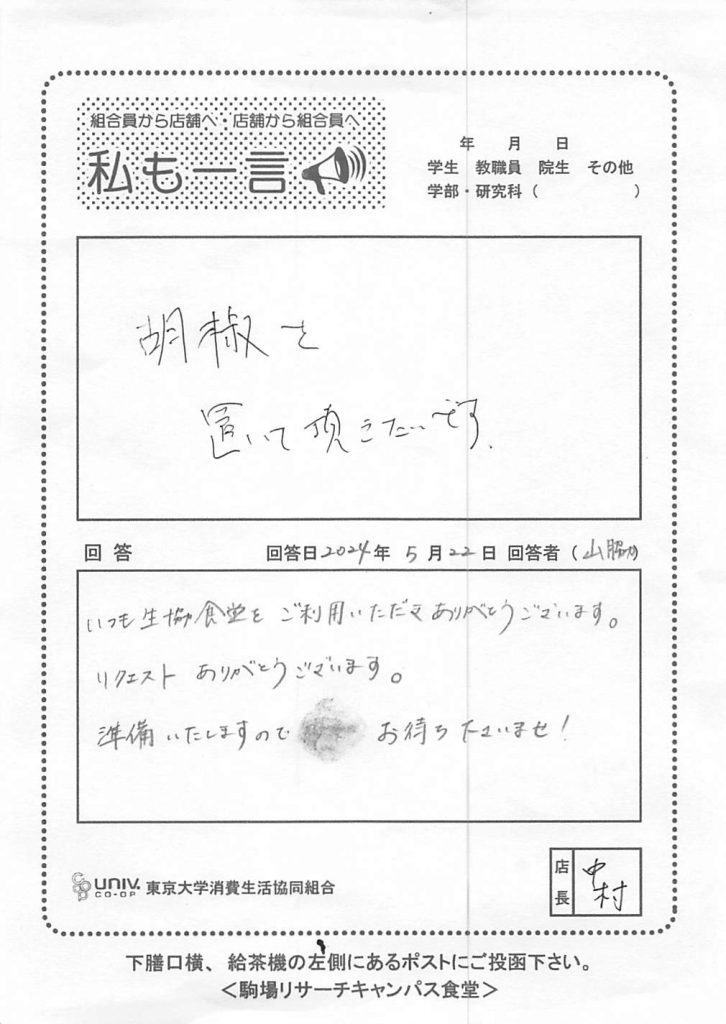 組合員から店舗へ・店舗から組合員へ
私も一言
年 月 日
学生 教職員 院生 その他
学部・研究科( )
胡椒を
置いて頂きたいです.
回答 回答日2024年 5月22日 回答者(山脇)
いつも生協食堂を ご利用いただき ありがとうございます。
リクエスト ありがとうございます。
準備いたしますので お待ち下さいませ!
UNIV. CO-OP 東京大学消費生活協同組合
店長 中村
下膳口横、給茶機の左側にあるポストにご投函下さい。
<駒場リサーチキャンパス食堂>